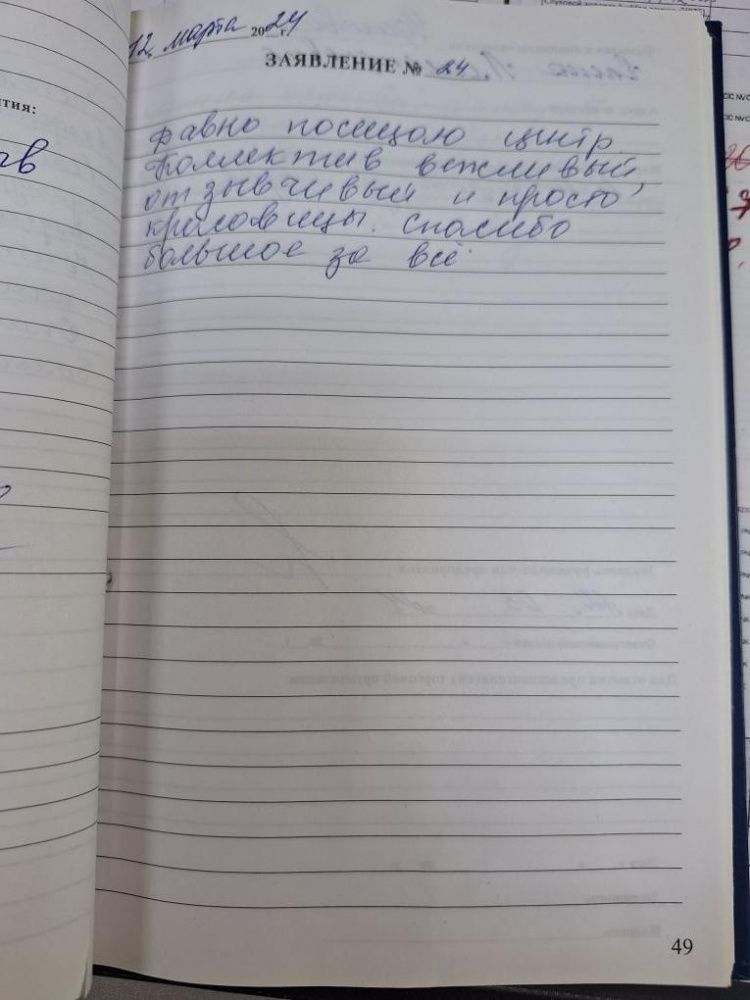 12 марта 2024 г.
ЗАЯВЛЕНИЕ № 24
тия:
Давно посещаю центр.
Коллектив вежливый,
отзывчивый и просто
красовицы. Спасибо
большое за всё.
49